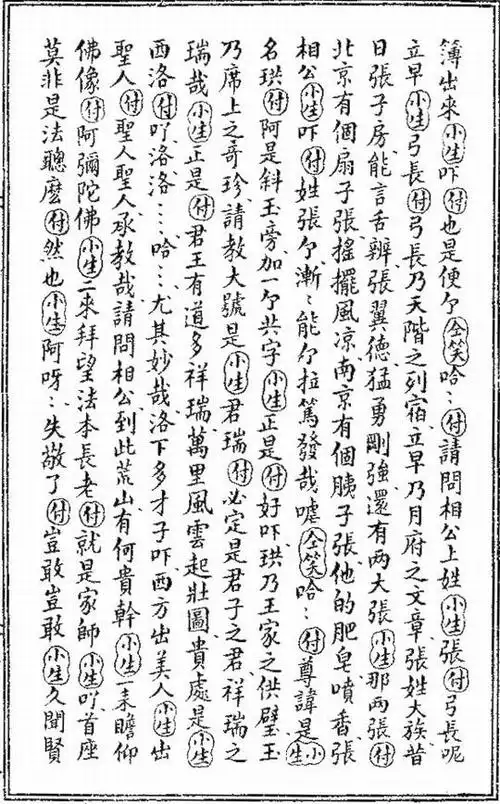 簿出來小生吓付也是便个仝笑哈〻付請問相公上姓小生張付弓長呢
立早小生弓長付弓長乃天階之列宿立早乃月府之文章張姓大族昔
日張子房能言舌辨張翼德猛勇剛強還有两大張小生那两張付
北京有個扇子張搖擺風凉南京有個胰子張他的肥皂噴香張
相公小生吓付姓張个漸〻能个拉篤發哉嘘仝笑哈〻付尊諱是小生
名珙付阿是斜玉旁加一个共字小生正是付好吓珙乃王家之供璧玉
乃席上之奇珍請教大號是小生君瑞付必定是君子之君祥瑞之
瑞哉小生正是付君王有道多祥瑞萬里風雲起壯圖貴處是小生
西洛付吖洛洛〻〻哈〻〻尤其妙哉洛下多才子吓西方出美人小生出
聖人付聖人聖人承教哉請問相公到此荒山有何貴幹小生一来瞻仰
佛像付阿彌陀佛小生二來拜望法本長老付就是家師小生吖首座
莫非是法聰麽付然也小生阿呀〻失敬了付豈敢豈敢小生久聞賢